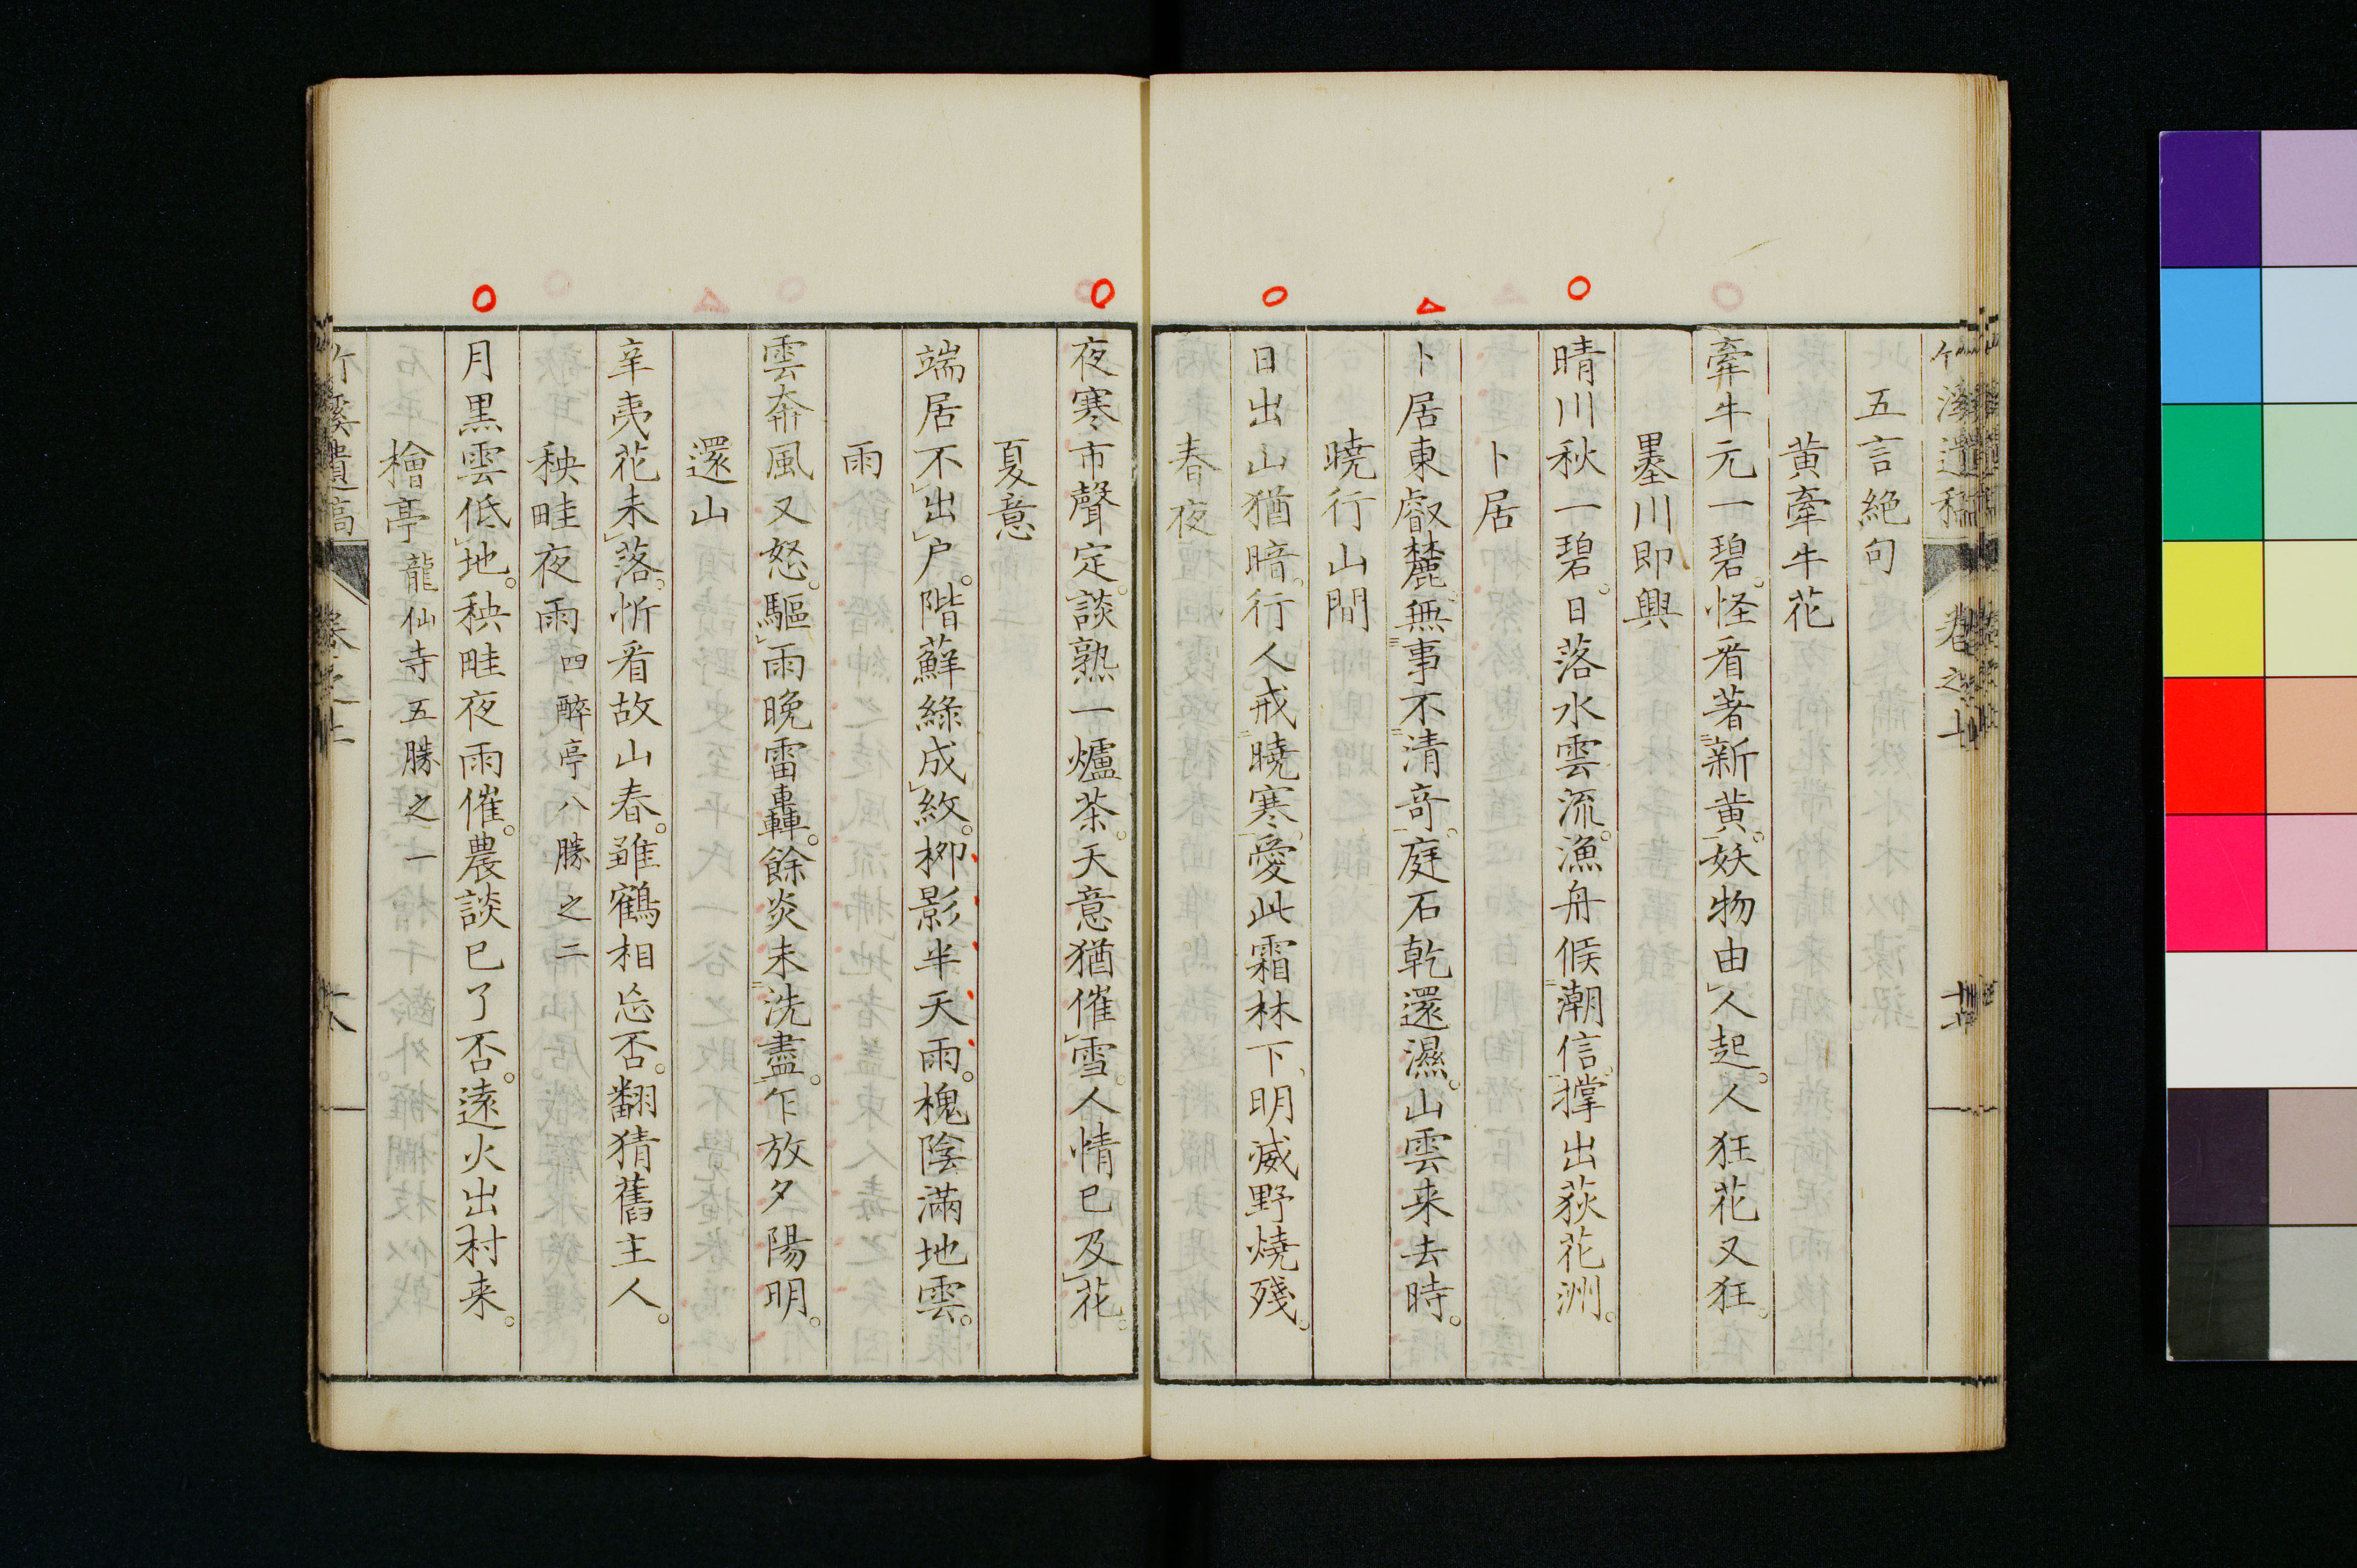 五言絶句
黄牽牛花
牽牛元一碧。怪看著新黄。妖物由人起。人狂花又狂。
墨川即興
晴川秋一碧。日落水雲流。漁舟候潮信。撑出荻花洲。
卜居
卜居東叡麓。無事不清奇。庭石乾還濕。山雲来去時。
曉行山間
日出山猶暗。行人戒曉寒。愛此霜林下、明滅野燒殘。
春夜
夜寒市聲定。談熟一爐茶。天意猶催雪。人情已及花。
夏意
端居不出户。階蘚綠成紋。柳影半天雨。槐陰滿地雲。
雨
雲奔風又怒。驅雨晚雷轟。餘炎未洗盡。乍放夕陽明。
還山
辛夷花未落。忻看故山春。雖鶴相忘否。翻猜舊主人。
秧畦夜雨 四醉亭八勝之二
月黒雲低地。秧畦夜雨催。農談已了否。遠火出村来。
檜亭 龍仙寺五勝之一
竹溪遺稿 卷之上